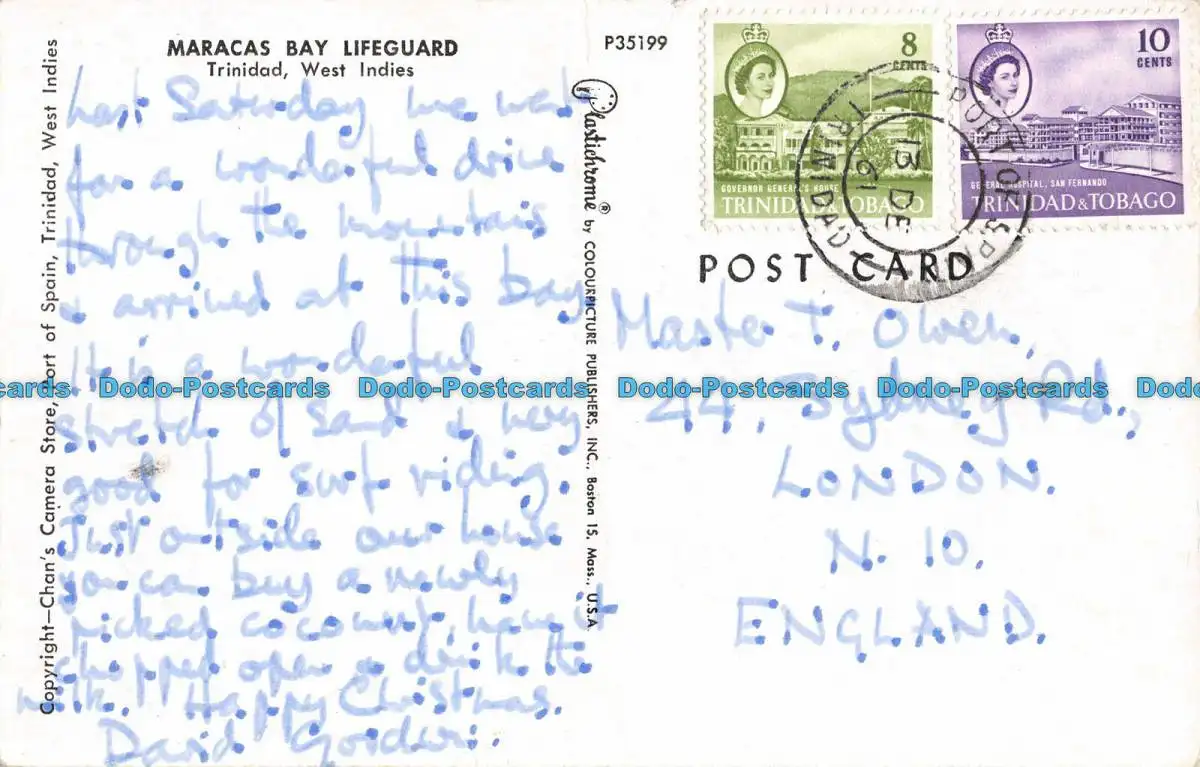 MARACAS BAY LIFEGUARD
Trinidad, West Indies
Last Saturday we went
for a wonderful drive
through the mountains
& arrived at this bay.
It is a wonderful
stretch of sand & very
good for surf riding.
Just outside our house
you can buy a newly
picked coconut, have it
chopped open & drink the
milk. Happy Christmas.
David
Copyright—Chan's Camera Store, Port of Spain, Trinidad, West Indies
Plastichrome® by COLOURPICTURE PUBLISHERS, INC., Boston 15, Mass., U.S.A.
P35199
8
CENTS
GOVERNOR GENERAL'S HOUSE
TRINIDAD & TOBAGO
10
CENTS
GENERAL HOSPITAL, SAN FERNANDO
TRINIDAD & TOBAGO
PORT OF SPA
13 DE
61
TRINIDAD
POST CARD
Master T. Owen,
44, Sydney Rd,
LONDON.
N. 10.
ENGLAND.
Dodo-Postcards Dodo-Postcards Dodo-Postcards Dodo-Postcards